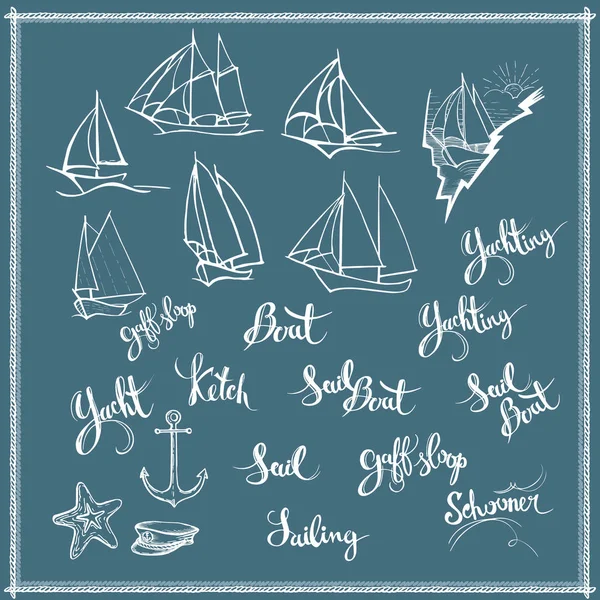 Yachting
gaff sloop
Boat
Yachting
Yacht
Ketch
Sail
Boat
Sail
Boat
Sail
Gaff sloop
Schooner
Sailing